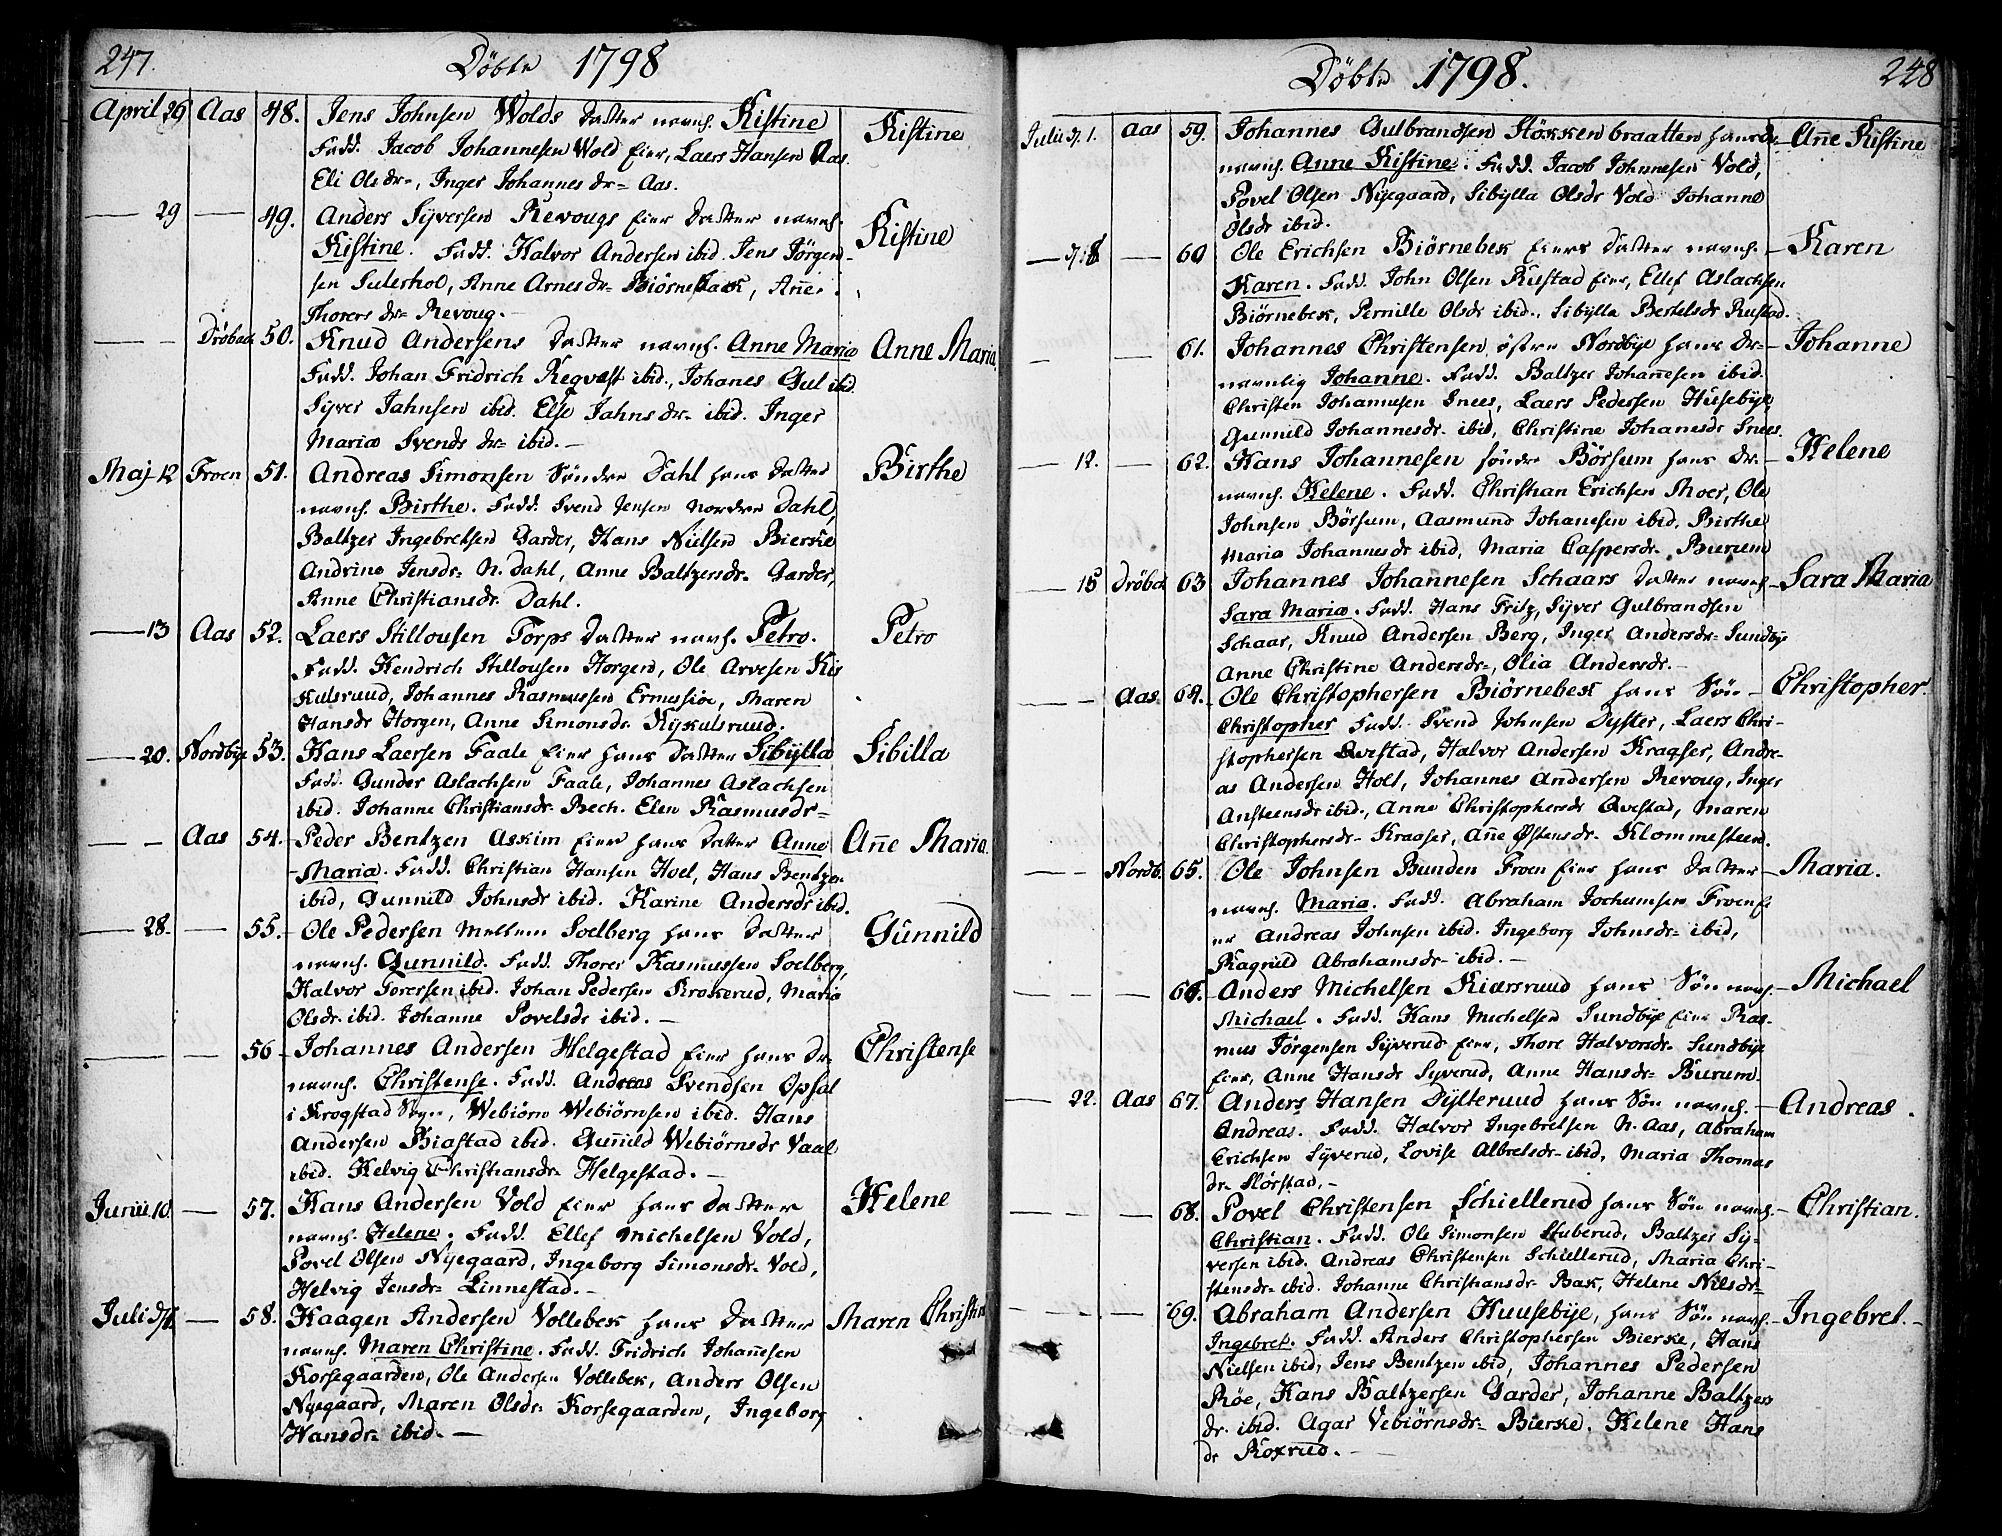 247.
Döbte 1798
April 26 Aas 48. Jens Johnsen Wolds datter navnl. Kistine Kistine
Fadd. Jacob Johannesen Wold Eier, Laers Hansen Aas.
Eli Ols dr-, Inger Johannes dr- Aas.
29 — 49. Anders Syversen Revougs Eier datter navnl. Kistine
Kistine. Fadd. Halvor Andersen ibid. Jens Jörgen-
sen Sulerhol, Anne Arnes dr- Biörnebæk, Añe
Thorers dr- Revoug. —
— — Dröbak 50. Knud Andersens datter navnl. Anne Maria Anne Maria
Fadd. Johan Fridrich Reqvast ibid., Johanes Gul ibid.
Syver Jahnsen ibid. Else Jahns dr- ibid. Inger
Maria Svends dr- ibid. —
Maj 12 Froen 51. Andreas Simonsen Söndre Dahl hans datter Birthe
navnl. Birthe. Fadd. Svend Jensen Nordre Dahl,
Baltzer Ingebretsen Garder, Hans Nielsen Bierke
Andrine Jensdr- N. Dahl, Anne Baltzersdr- Garder,
Anne Christiansdr. Dahl.
— 13 Aas 52. Laers Stillousen Torps datter navnl. Petro. Petro
Fadd. Hendrich Stillousen Horgen, Ole Arvesen Kis
Kulsruud, Johannes Rasmussen Ermessiöe, Maren
Hansdr Horgen, Anne Simonsdr. Kykulsruud.
— 20. Nordbye 53. Hans Laersen Faale Eier hans datter Sibylla Sibilla
Fadd. Gunder Aslachsen Faale, Johannes Aslachsen
ibid. Johanne Christiansdr- Bech. Elen Rasmusdr-
— — Aas 54. Peder Bentzen Askim Eier hans datter Anne Añe Maria.
Maria. Fadd. Christian Hansen Hoel, Hans Bentzen
ibid, Gunnild Johnsdr ibid. Karine Andersdr ibid.
— 28. — 55. Ole Pedersen Mellem Soelberg hans datter Gunnild
navnl. Gunnild. Fadd. Thorer Rasmussen Soelberg,
Halvor Torersen ibid. Johan Pedersen Krokerud, Maria
Olsdr. ibid. Johanne Povelsdr ibid. —
— — 56 Johannes Andersen Helgestad Eier hans dr. Christense
navnl. Christense. Fadd. Andreas Svendsen Opsal
i Krogstad Sogn, Webiörn Webiörnsen ibid. Hans
Andersen Biastad ibid. Guñild Webiörnsdr Vaal
ibid. Helvig Christiansdr- Helgestad. —
Junii 10. — 57. Hans Andersen Vold Eier hans datter Helene
navnl. Helene. Fadd. Ellef Michelsen Vold,
Povel Olsen Nyegaard, Ingeborg Simonsdr- Vold,
Helvig Jensdr- Linnestad. —
Juli d. 1. — 58. Haagen Andersen Vollebek hans datter Maren Christine
navnl. Maren Christine. Fadd. Fridrich Johañesen
Korsegaarden, Ole Andersen Vollebek, Anders Olsen
Nyegaard, Maren Olsdr. Korsegaarden, Ingeborg
Hansdr- ibid. —
248
Döbte 1798.
Julii d. 1. Aas 59. Johannes Gulbrandsen Stökkenbraatten hans dr. Añe Kistine
navnl. Anne Kistine. Fadd. Jacob Johannesen Vold,
Povel Olsen Nyegaard, Sibylla Olsdr Vold Johanne
Olsdr ibid.
— d. 8 — 60 Ole Erichsen Biörnebek Eiers datter navnl. Karen
Karen. Fadd. John Olsen Rustad Eier, Ellef Aslachsen
Biörnebek, Pernille Olsdr ibid., Sibylla Bertelsdr Rustad.
— — 61. Johannes Christensen östre Nordbye hans dr- Johanne
navnlig Johanne. Fadd. Baltzer Johañesen ibid.
Christen Johannesen Snees, Laers Pedersen Husebye,
Gunnild Johannesdr. ibid, Christine Johanesdr Snees.
— 12. — 62. Hans Johannesen söndre Börsum hans dr. Helene
navnl. Helene. Fadd. Christian Erichsen Moer, Ole
Johnsen Börsum, Aasmund Johanesen ibid. Birthe
Maria Johannesdr ibid, Maria Caspersdr. Burum
— 15 Dröbak 63 Johannes Johannesen Schaars datter navnl. Sara Maria
Sara Maria. Fadd. Hans Fritz, Syver Gulbrandsen
Schaar, Knud Andersen Berg, Inger Andersdr- Sundbye
Anne Christine Andersdr-, Olia Andersdr. —
— — Aas. 64. Ole Christophersen Biörnebek hans Sön Christopher.
Christopher Fadd. Svend Johnsen Dyster, Laers Chri-
stophersen Qvestad, Halvor Andersen Kragser, Andre-
as Andersen Holt, Johannes Andersen Revoug, Inger
Ansteensdr ibid., Anne Christophersdr Qvestad, Maren
Christophersdr- Kraaser, Añe Østensdr. Klommesteen.
— — Nordb. 65. Ole Johnsen Bunden Froen Eier hans datter Maria.
navnl. Maria. Fadd. Abraham Jochumsen Froen Ei
er Andreas Johnsen ibid. Ingeborg Johnsdr- ibid,
Ragnild Abrahamsdr- ibid. —
— — 66. Anders Michelsen Kiærsruud hans Sön navnl. Michael
Michael. Fadd. Hans Michelsen Sundbye Eier Ras-
mus Jörgensen Syverud Eier, Thore Halvorsdr. Sundbye
Eier, Anne Hansdr Syverud, Anne Hansdr- Burum.
— 22. Aas 67. Anders Hansen Dysteruud hans Sön navnl. Andreas.
Andreas. Fadd. Halvor Ingebretsen N. Aas, Abraham
Erichsen Syverud, Lovise Albretsdr- ibid, Maria Thomas
dr- Norstad. —
— — — 68. Povel Christensen Schiellerud hans Sön navnl. Christian.
Christian. Fadd. Ole Simonsen Stuberud, Baltzer Sy-
versen ibid. Andreas Christensen Schiellerud, Maria Chri-
stensdr- ibid. Johanne Christiansdr- Bak, Helene Nilsdr-
— — — 69. Abraham Andersen Huusebye, hans Sön navnl. Ingebret.
Ingebret. Fadd. Anders Christophersen Bierke, Hans
Nielsen ibid, Jens Bentzen ibid, Johannes Pedersen
Röe, Hans Baltzersen Garder, Johanne Baltzers
dr. ibid. Agar Vebiörnsdr- Bierke. Helene Hans
dr Roxrud. —